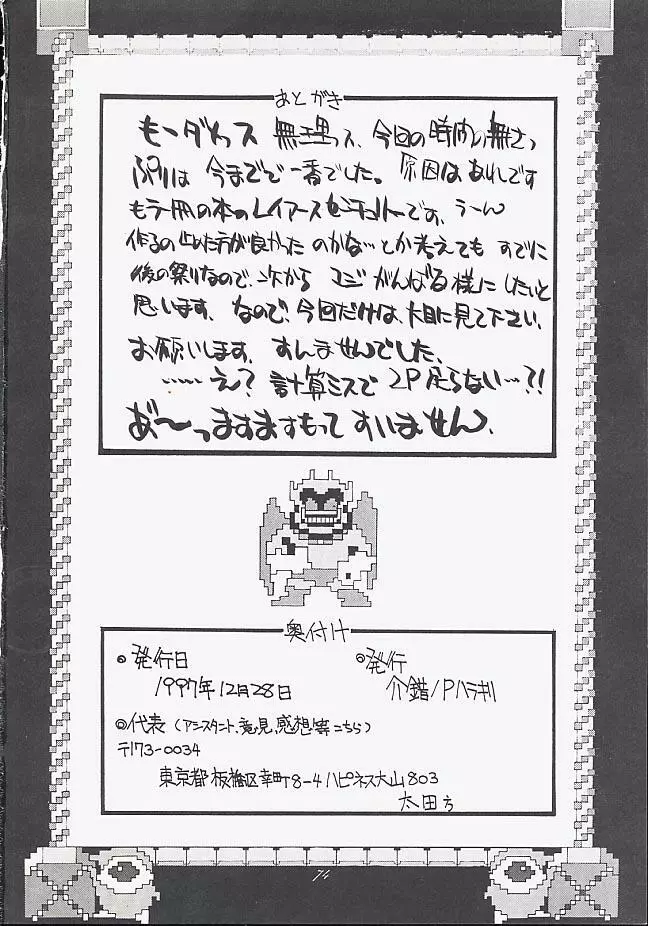 あとがき
もーダメっス 無理っス、今回の時間の無さっ
ぷりは 今までで一番でした。原因はあれです
もう一冊の本のレイアース です。うーん
作るの止めた方が良かった のかな…とか考えても すでに
後の祭りなので、次から マジ がんばる様に したいと
思います、なので、今回だけは、大目に見て下さい、
お願いします、すんませんでした、
……え？ 計算ミスで 2P足らない…?!
あ〜っますますもって すいません、
奥付け
◎発行日
◎発行
1997年12月28日
介錯/Pハラキリ
◎代表（アシスタント、意見、感想等こちら）
〒173-0034
東京都板橋区幸町8-4ハピネス大山803
太田方
74